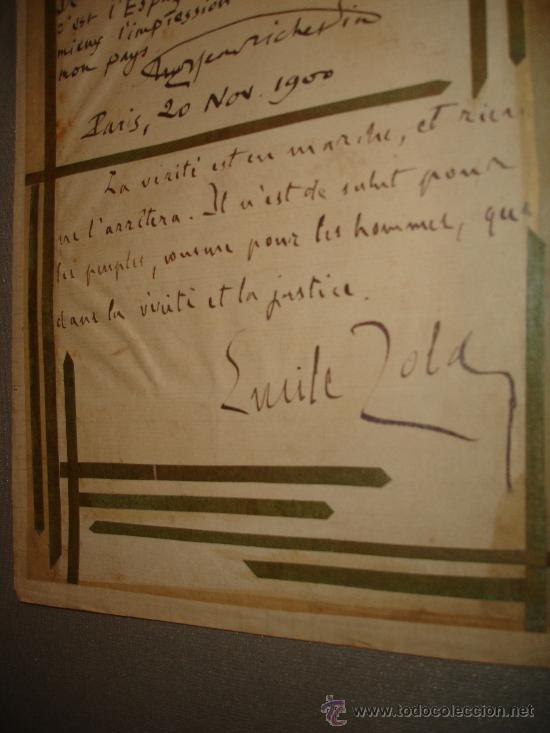 c'est l'Espag
mieux l'impression
mon pays
Paris, 20 Nov. 1900
La vérité est en marche, et rien
ne l'arrêtera. Il n'est de salut pour
les peuples, comme pour les hommes, que
dans la vérité et la justice.
Emile Zola
todocoleccion
www.todocoleccion.net